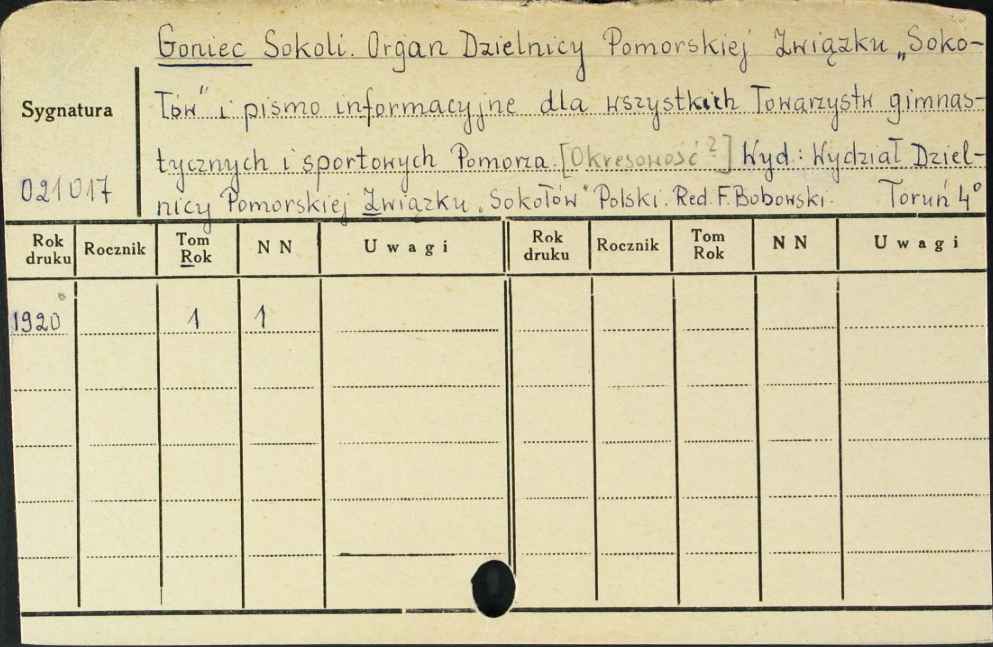 Goniec Sokoli. Organ Dzielnicy Pomorskiej Związku „Soko-
łów" i pismo informacyjne dla wszystkich Towarzystw gimnas-
tycznych i sportowych Pomorza. [Okresowość?] Wyd: Wydział Dziel-
nicy Pomorskiej Związku „Sokołów" Polski. Red. F. Bobowski. Toruń 4°
Sygnatura
021017
Rok druku Rocznik Tom Rok NN Uwagi Rok druku Rocznik Tom Rok NN Uwagi
1920 1 1